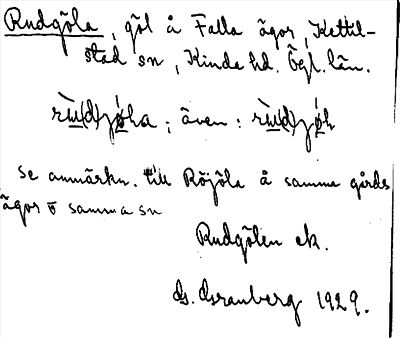 Rudgöla, göl å Falla ägor, Kettil-
stad sn, Kinda hd. Ögl. län.
även:
se anmärkn. till Röjöla å samma gårds
ägor o samma sn
Rudgölen ek.
Granberg 1929.